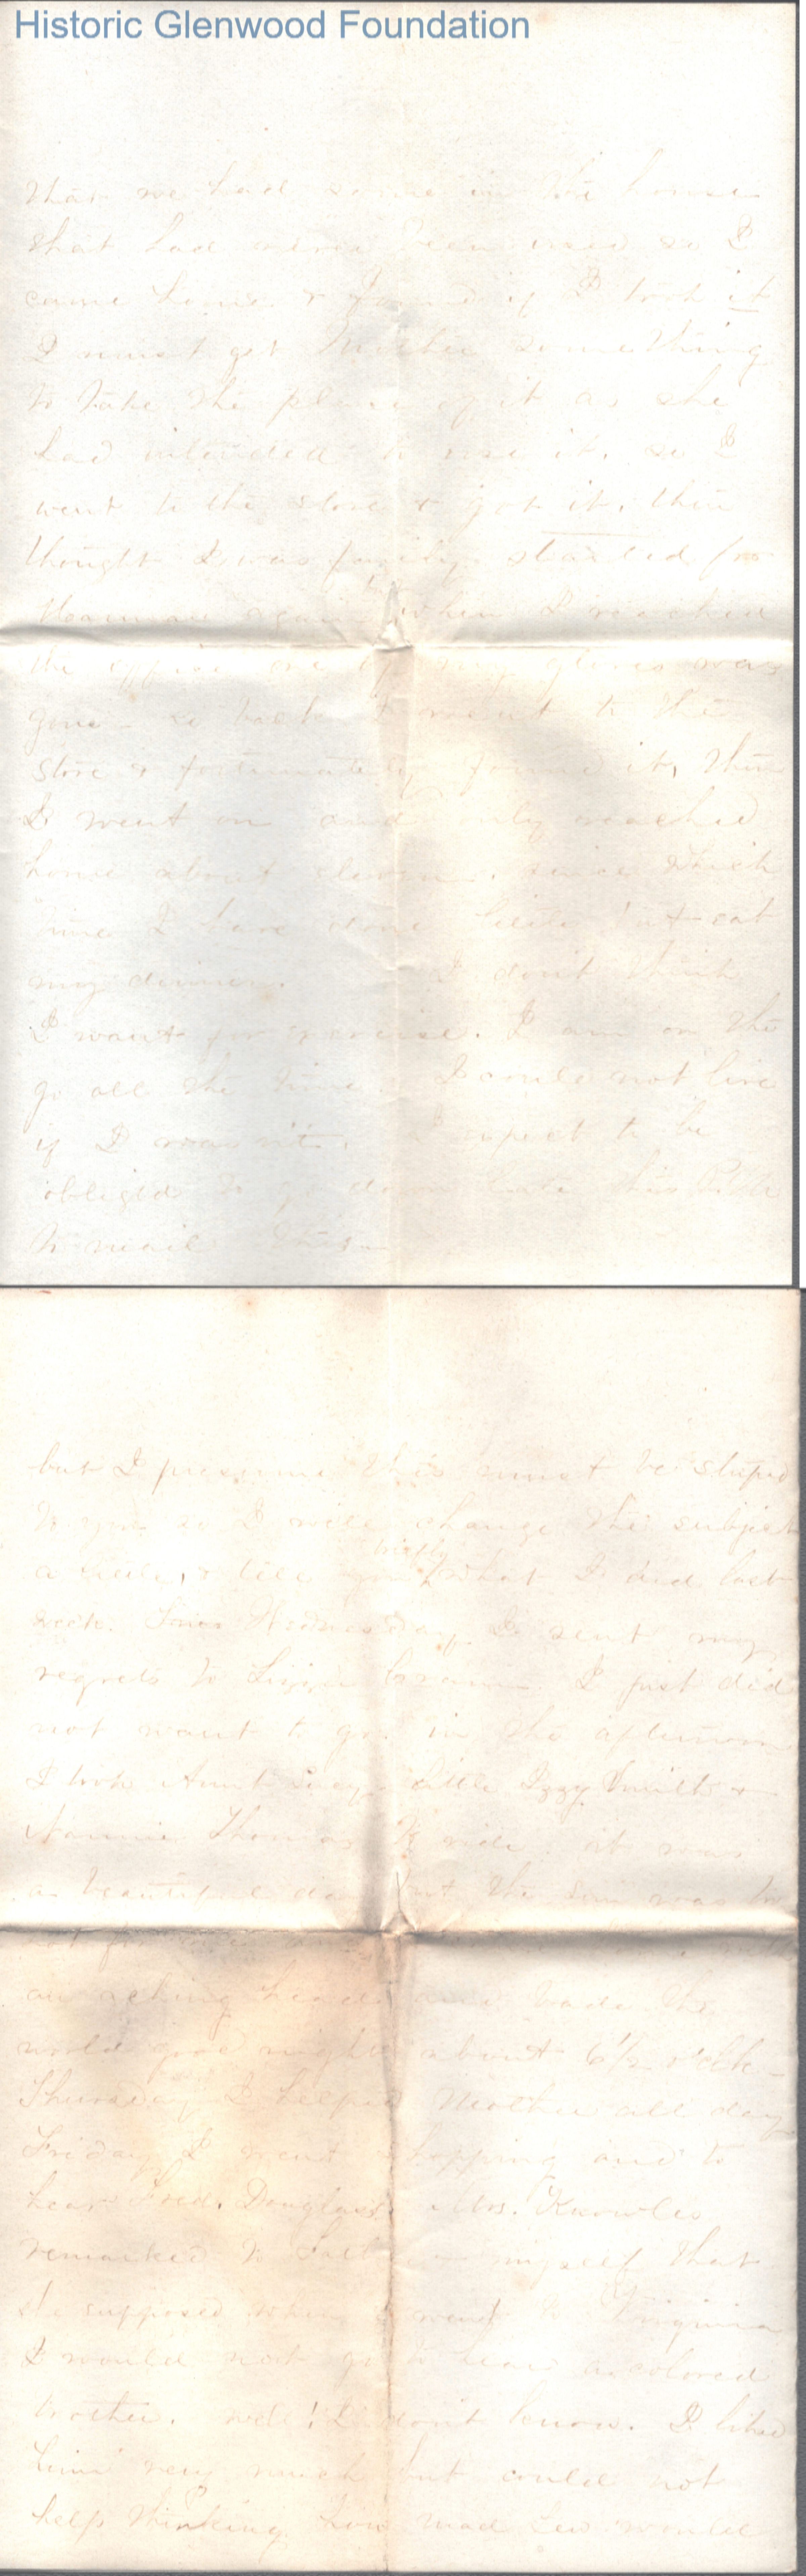 Historic Glenwood Foundation
that we had some in the house
that had never been used so I
came home & found if I took it
I must get Mother something
to take the place of it as she
had intended to use it, so I
went to the store & got it, then
thought I was fairly started for
again when I reached
the office one of my gloves was
gone - so back I went to the
store & fortunately found it, then
I went on and only reached
home about eleven, since which
time I have done little but eat
my dinner. I don't think
I want for exercise. I am on the
go all the time. I could not live
if I was n't. I expect to be
obliged to go down late this
to mail this -
but I presume this must be stupid
to you so I will change the subject
a little, & tell you briefly what I did last
week. Wednesday I sent my
regrets to Lizzie I just did
not want to go, in the afternoon
I took Aunt little Izzy Smith &
Nannie Thomas to ride. it was
a beautiful day but the sun was too
hot for
an aching head and bade the
world good night about 6 1/2 o'clk -
Thursday I helped Mother all day
Friday I went shopping and to
hear Fred. Douglass. Mrs. Knowles
remarked to Father & myself that
she supposed when I went to Virginia
I would not go to hear a colored
brother. well! I don't know. I liked
him very much but could not
help thinking how mad Lew would